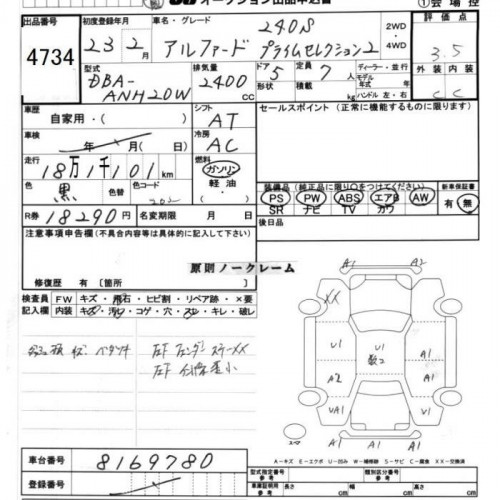 オークション出品申込書 ①会場控
出品番号 4734
初度登録年月 23年2月
車名・グレード 240S
アルファード プライムセレクション2
2WD・4WD
評価点 3.5
外装 内装
C C
型式 DBA-ANH20W
排気量 2400 cc
ドア 5 形状
定員 7人
積載 kg
ディーラー・並行
モデル年式 年
ハンドル 左・右
車歴 自家用・
シフト AT
セールスポイント(正常に機能するものに限ります)
車検 年 月(日)
冷房 AC
走行 18万1千101km
燃料 ガソリン
軽油・
色 黒 色替 色コード 202
装備品(純正品に限り○をつけてください)
PS PW ABS エアB AW
SR ナビ TV カワ
新車保証書
有・無
R券 18290円 名変期限 月 日
後日品
注意事項申告欄(不具合内容等は具体的に記入して下さい)
修復歴 有[箇所 ]
原則ノークレーム
検査員記入欄
FW キズ・飛石・ヒビ割・リペア跡・×要
内装 キズ・汚レ・コゲ・穴・スレ・キレ・破レ
A1 A2
XX
U1 U1 A1
A2 A1
UA1 VA1
A1 A1
A-キズ E-エクボ U-凹み W-補修跡 S-サビ C-腐食 XX-交換済
車台番号 8169780
登録番号
型式指定番号 類別区分番号
長さ cm 幅 cm 高さ cm